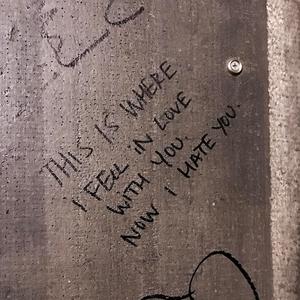 THIS IS WHERE
I FELL IN LOVE
WITH YOU.
NOW I HATE YOU.